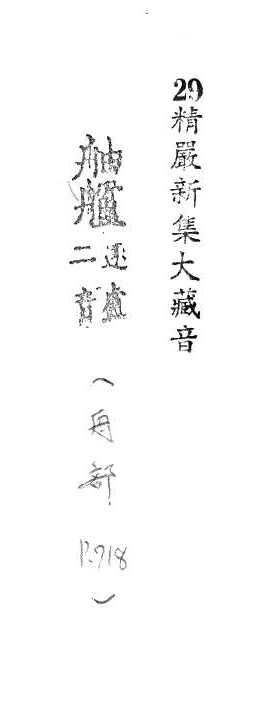 29精嚴新集大藏音
舳艫逐盧二音
(舟部 P.718)